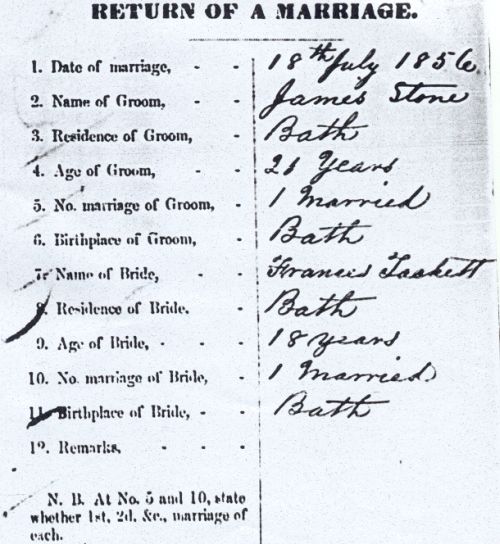 RETURN OF A MARRIAGE.
1. Date of marriage, - - 18th July 1856
2. Name of Groom, - - James Stone
3. Residence of Groom, - Bath
4. Age of Groom, - - 21 Years
5. No. marriage of Groom, - 1 Married
6. Birthplace of Groom, - Bath
7. Name of Bride, - - Frances Tackett
8. Residence of Bride. - Bath
9. Age of Bride, - - - 18 years
10. No. marriage of Bride, - 1 Married
11. Birthplace of Bride, - - Bath
12. Remarks, - - -
N. B. At No. 5 and 10, state
whether 1st, 2d, &c., marriage of
each.